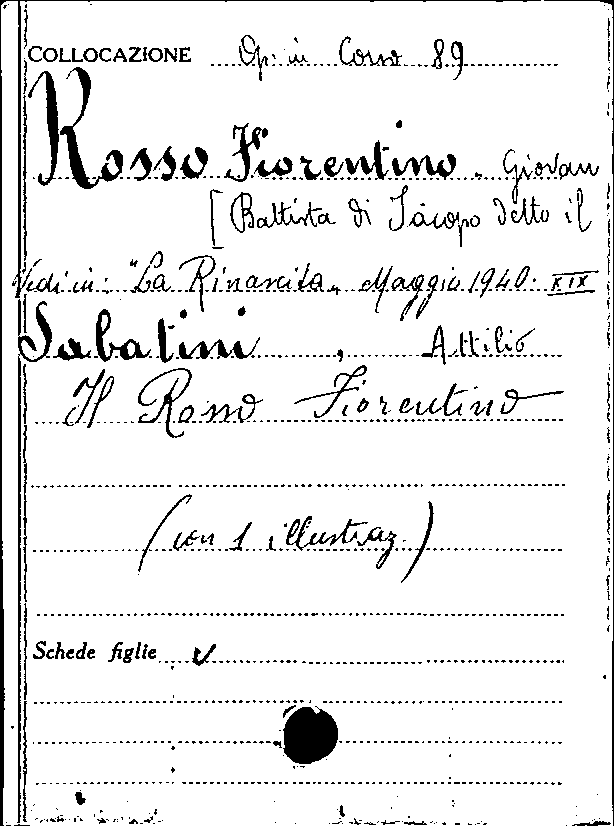 COLLOCAZIONE Op: in Corso 89
Rosso Fiorentino. Giovan
[Battista di Jacopo detto il
Vedi in: "La Rinascita" Maggio 1940: XIX
Sabatini, Attilio
Il Rosso Fiorentino
(con 1 illustraz.)
Schede figlie v